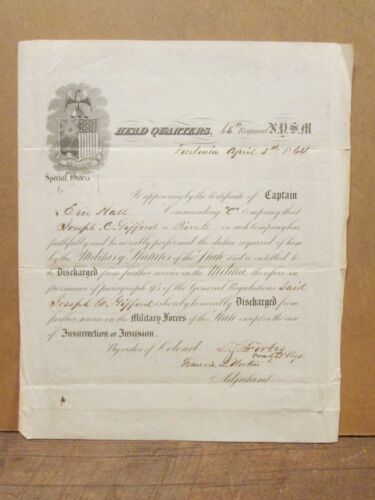 HEAD QUARTERS, 66th Regiment N.Y.S.M
Fredonia April 5th 1864
Special Orders
It appearing by the Certificate of Captain
Eli Hall Commanding "C" Company that
Joseph C. Gifford a Private in such Company has
faithfully and honorably performed the duties required of him
by the Military Statutes of the State and is entitled to
be Discharged from further service in the Militia, therefore in
pursuance of paragraph 93 of the General Regulations Said
Joseph C. Gifford is hereby honorably Discharged from
further service in the Military Forces of the State except in the case
of Insurrection or Invasion.
By order of Colonel Forbes
Comdg Regt
Francis
Adjutant